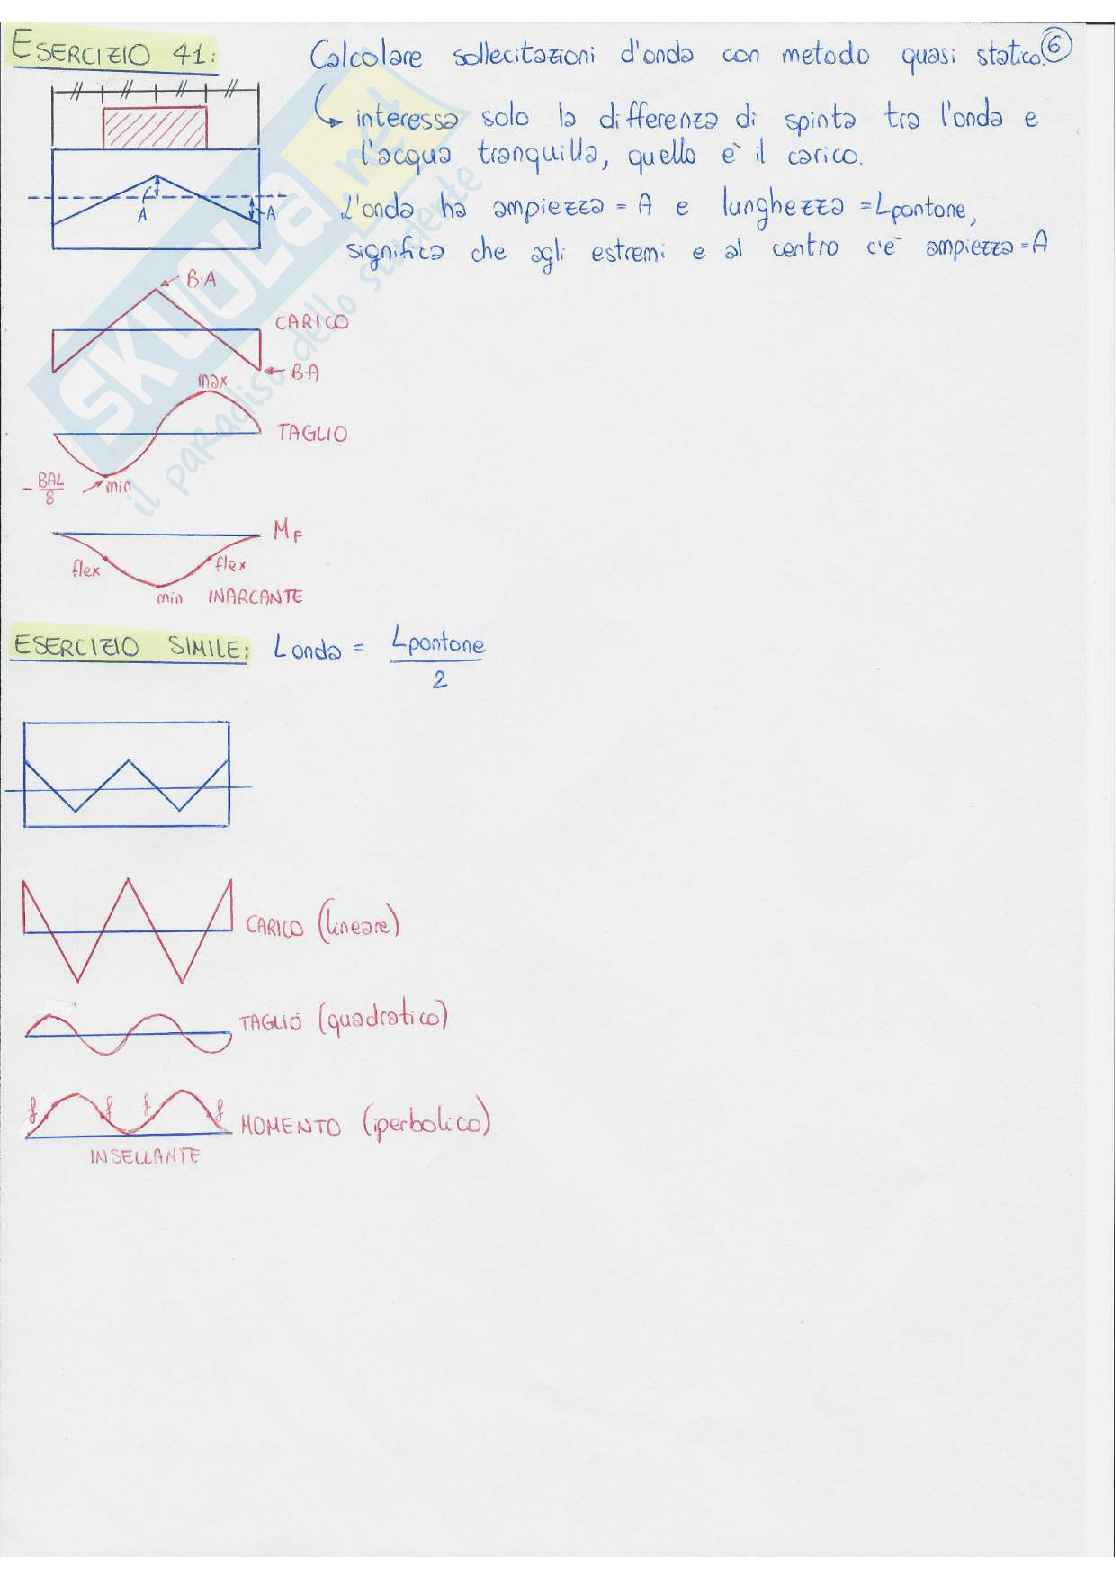 ESERCIZIO 41: Calcolare sollecitazioni d'onda con metodo quasi statico. 6
interessa solo la differenza di spinta tra l'onda e
l'acqua tranquilla, quello è il carico.
L'onda ha ampiezza = A e lunghezza = Lpontone,
significa che agli estremi e al centro c'è ampiezza = A
A
A
BA
CARICO
BA
max
TAGLIO
- BAL/8
min
MF
flex
flex
min INARCANTE
ESERCIZIO SIMILE: Londa = Lpontone
2
CARICO (lineare)
TAGLIO (quadratico)
f f f f
MOMENTO (iperbolico)
INSELLANTE
SKUOLA.net
il paradiso dello studente